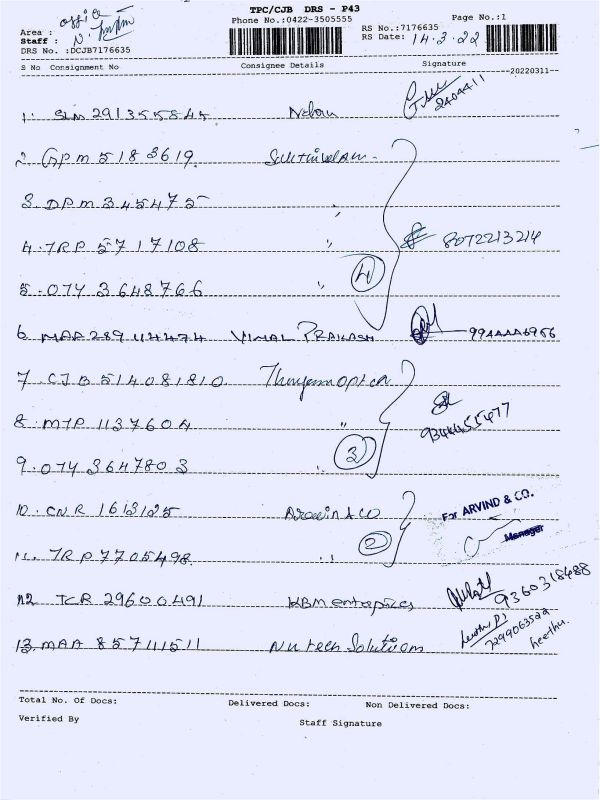 TPC/CJB DRS - P43
Phone No.:0422-3505555
Page No.:1
Area : office
Staff : N.
RS No.:7176635
RS Date: 14.3.22
DRS No. :DCJB7176635
S No Consignment No Consignee Details Signature
--20220311--
1. SLM 291355845
2404411
2. GPM 5183619. Sakthivelam
3. DPM 345475 "
4. TRP 5717108 " 4 8072213214
5. 074 3648766 "
6. MAA 289114474 VIMAL PRAKASH 9944446966
7. CJB 514081810
8. MTP 1137604 " 3 9344455477
9. 074 3647803 "
10. CNR 1613125 Arowin & CO For ARVIND & CO.
11. TRP 7705498 " 2 Manager
12 TCR 29600491 KBM entaprizes 9360318488
13. MAA 857111511 Nutech Solutions 7299063522
heethu.
Total No. Of Docs: Delivered Docs: Non Delivered Docs:
Verified By Staff Signature